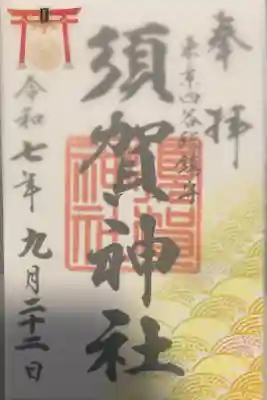 奉拝
東京四谷総鎮守
須賀神社
令和七年九月二十二日